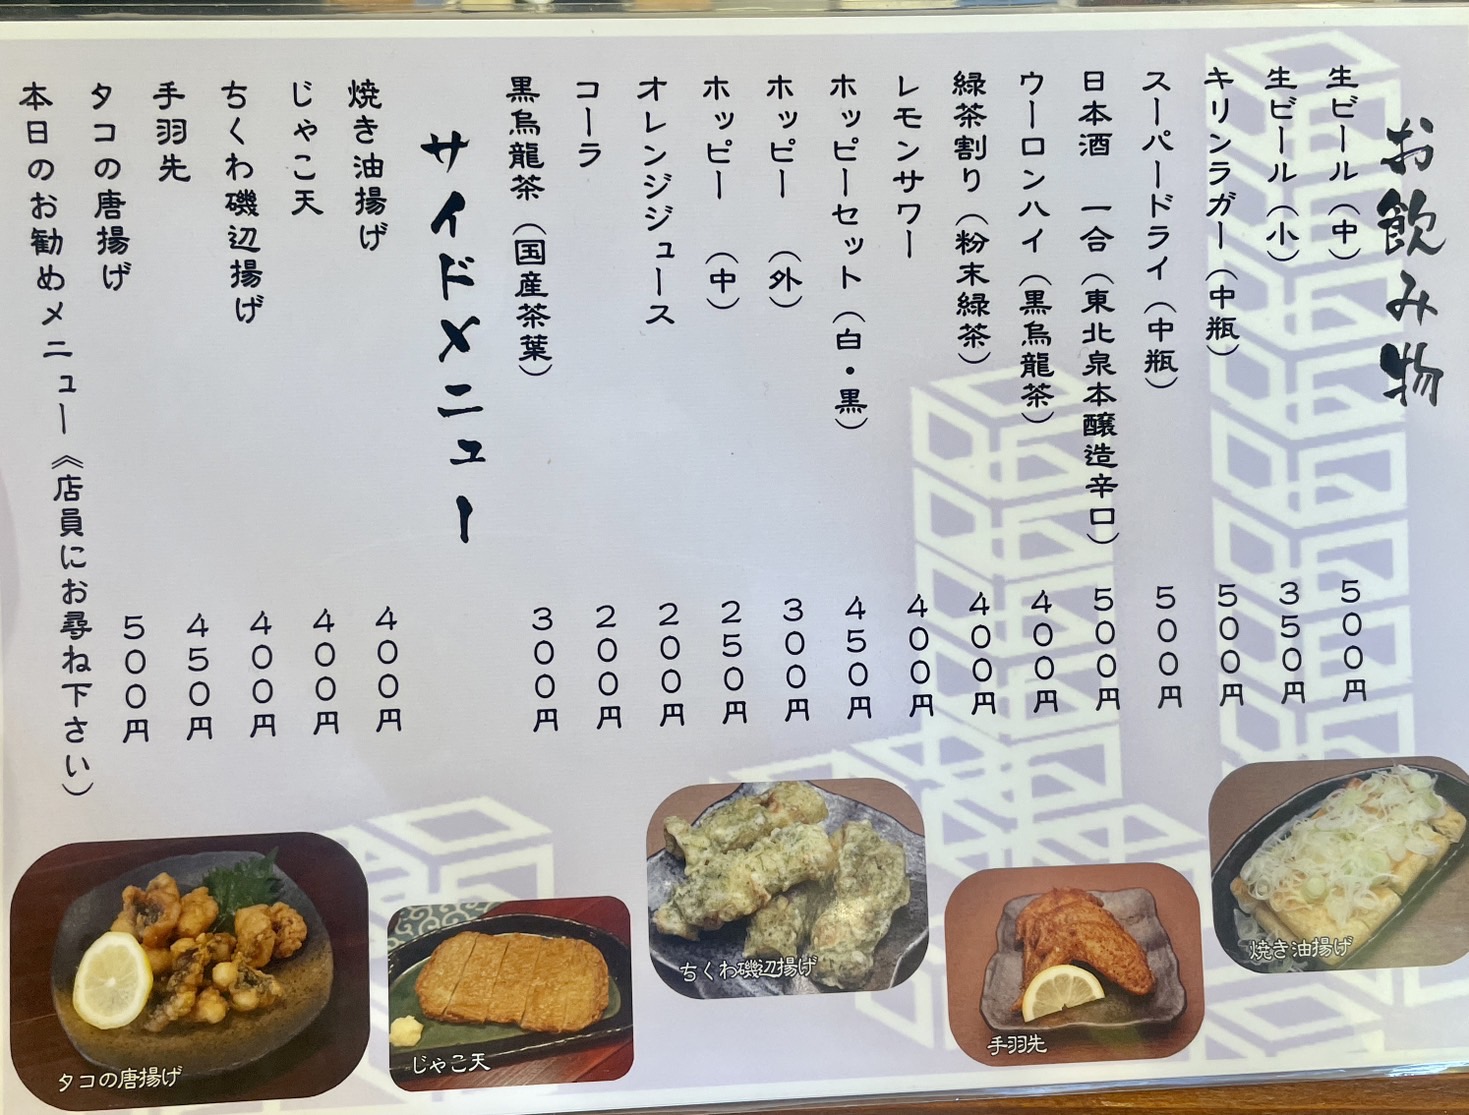 お飲み物
生ビール（中） 500円
生ビール（小） 350円
キリンラガー（中瓶） 500円
スーパードライ（中瓶） 500円
日本酒　一合（東北泉本醸造辛口） 500円
ウーロンハイ（黒烏龍茶） 400円
緑茶割り（粉末緑茶） 400円
レモンサワー 400円
ホッピーセット（白・黒） 450円
ホッピー　（外） 300円
ホッピー　（中） 250円
オレンジジュース 200円
コーラ 200円
黒烏龍茶（国産茶葉） 300円
サイドメニュー
焼き油揚げ 400円
じゃこ天 400円
ちくわ磯辺揚げ 400円
手羽先 450円
タコの唐揚げ 500円
本日のお勧めメニュー《店員にお尋ね下さい）
焼き油揚げ
手羽先
ちくわ磯辺揚げ
じゃこ天
タコの唐揚げ